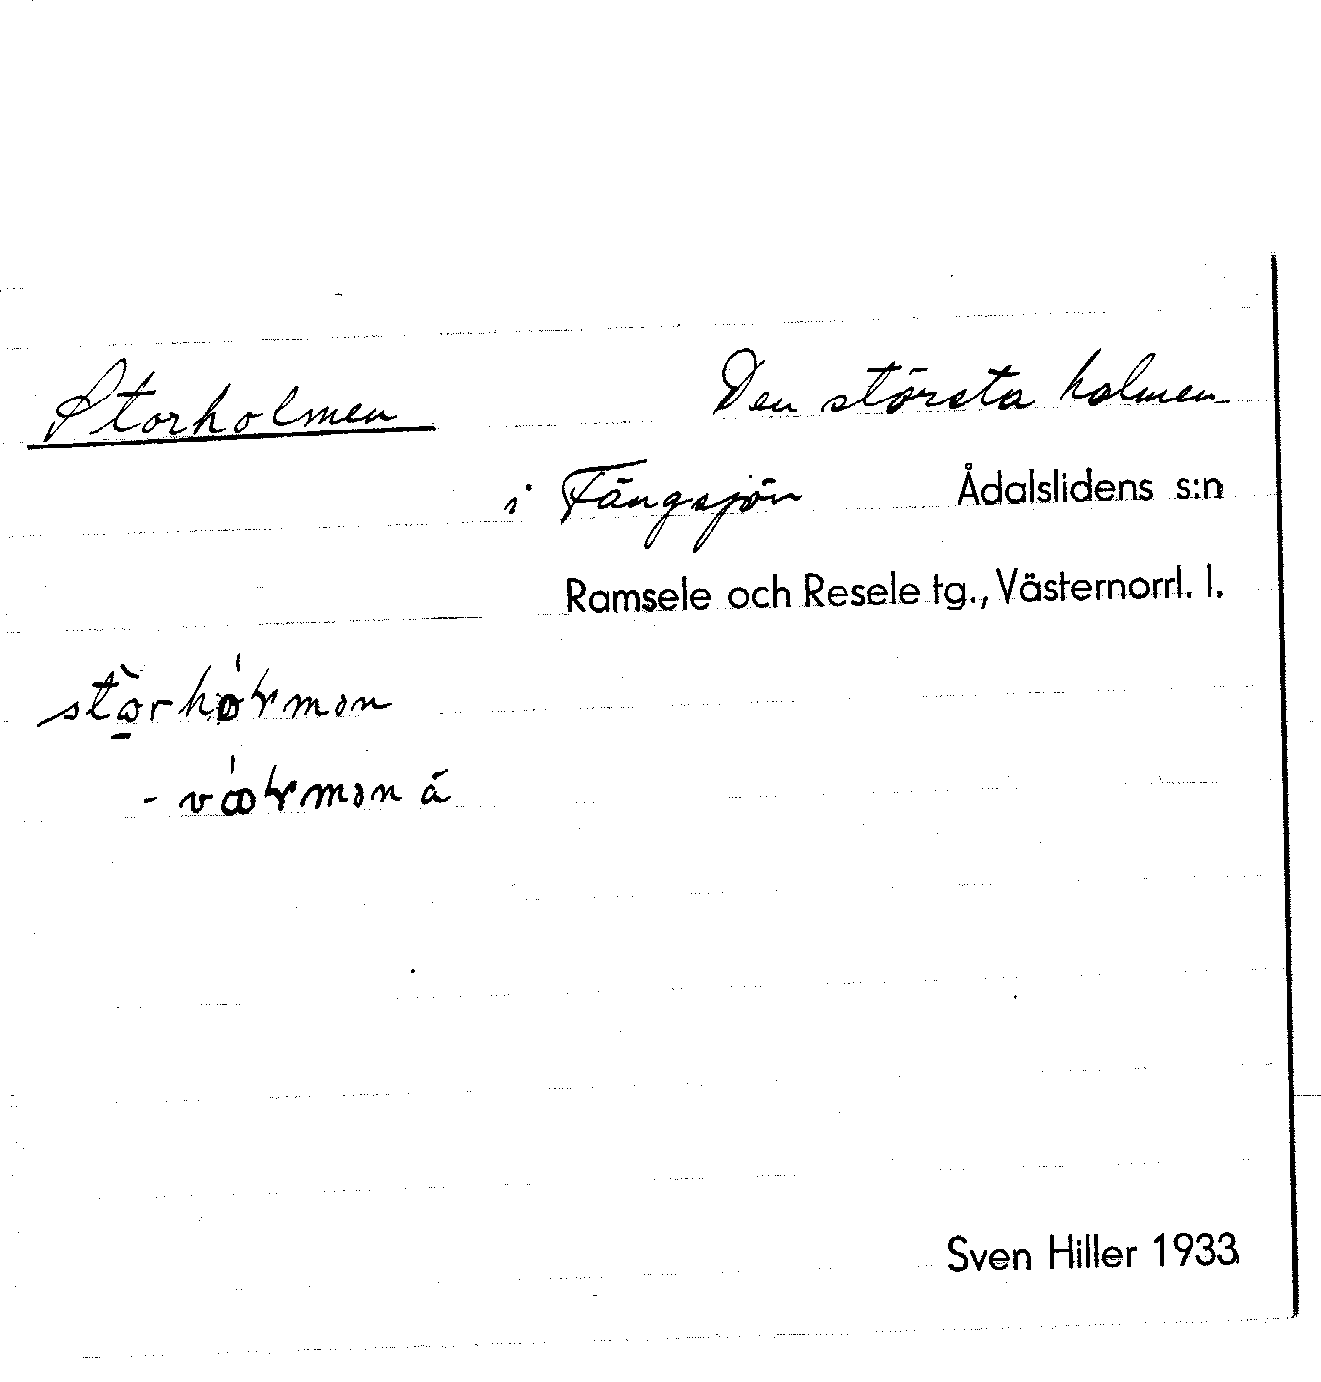 Storholmen Den största holmen
i Fängsjön Ådalslidens s:n
Ramsele och Resele tg., Västernorrl. l.
Sven Hiller 1933